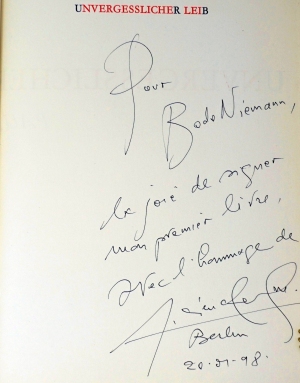 UNVERGESSLICHER LEIB
Pour
Bodo Niemann,
la joie de signer
mon premier livre,
avec l'hommage de
Berlin
20-01-98.